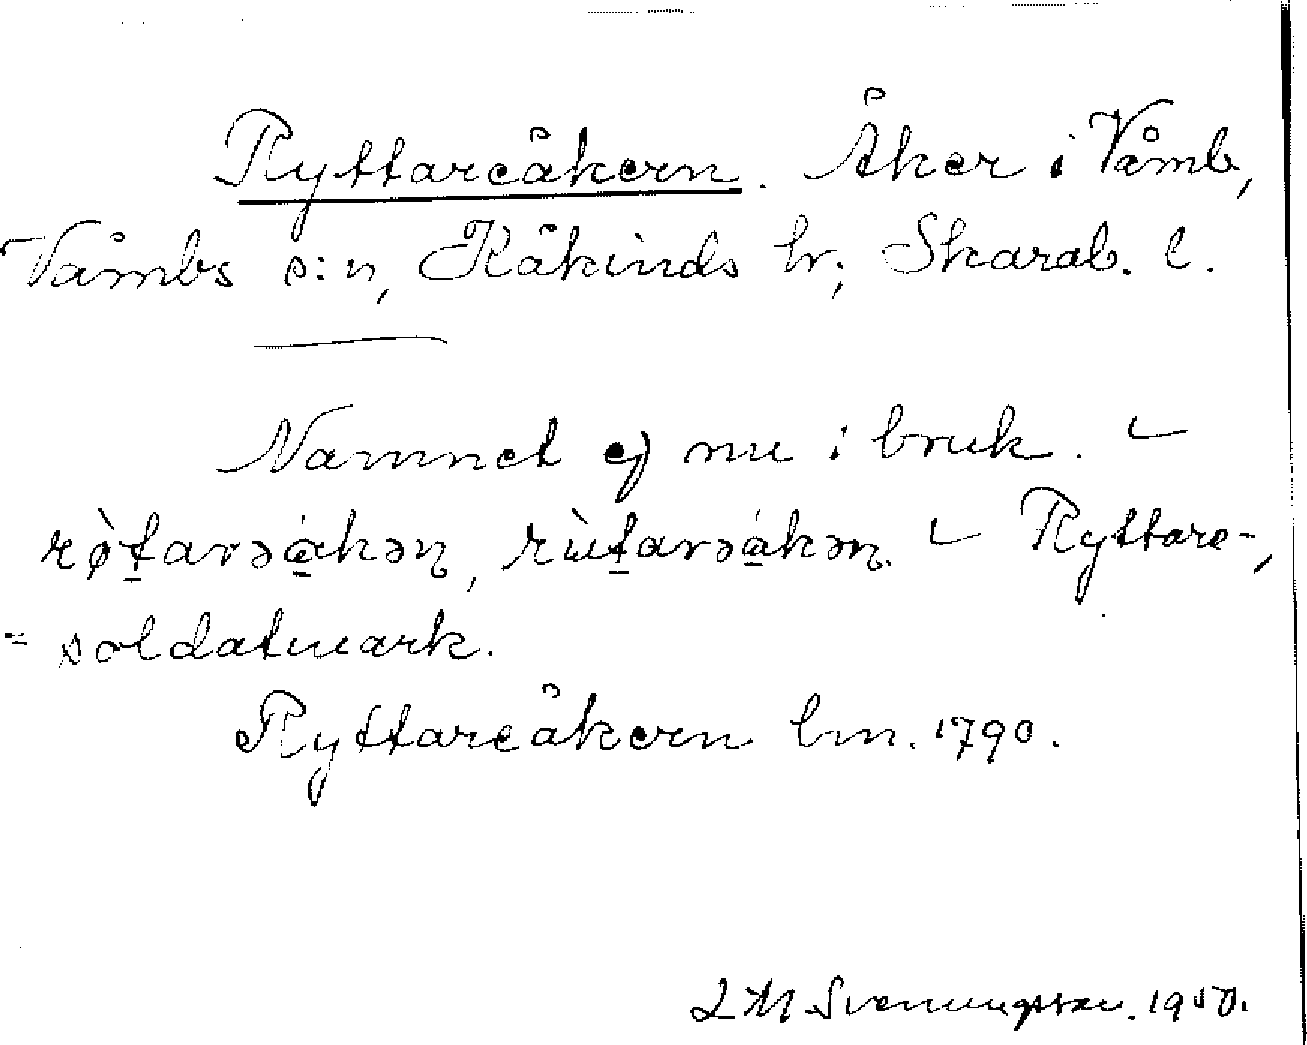 Ryttareåkern. Åker i Våmb,
Våmbs s:n, Kåkinds hr, Skarab. l.
Namnet ej nu i bruk. –
rø̀tarəåkəɳ, rùtarəåkəɳ. – Ryttare-,
= soldatmark.
Ryttareåkern lm. 1790.
L M Svenungsson. 1950.